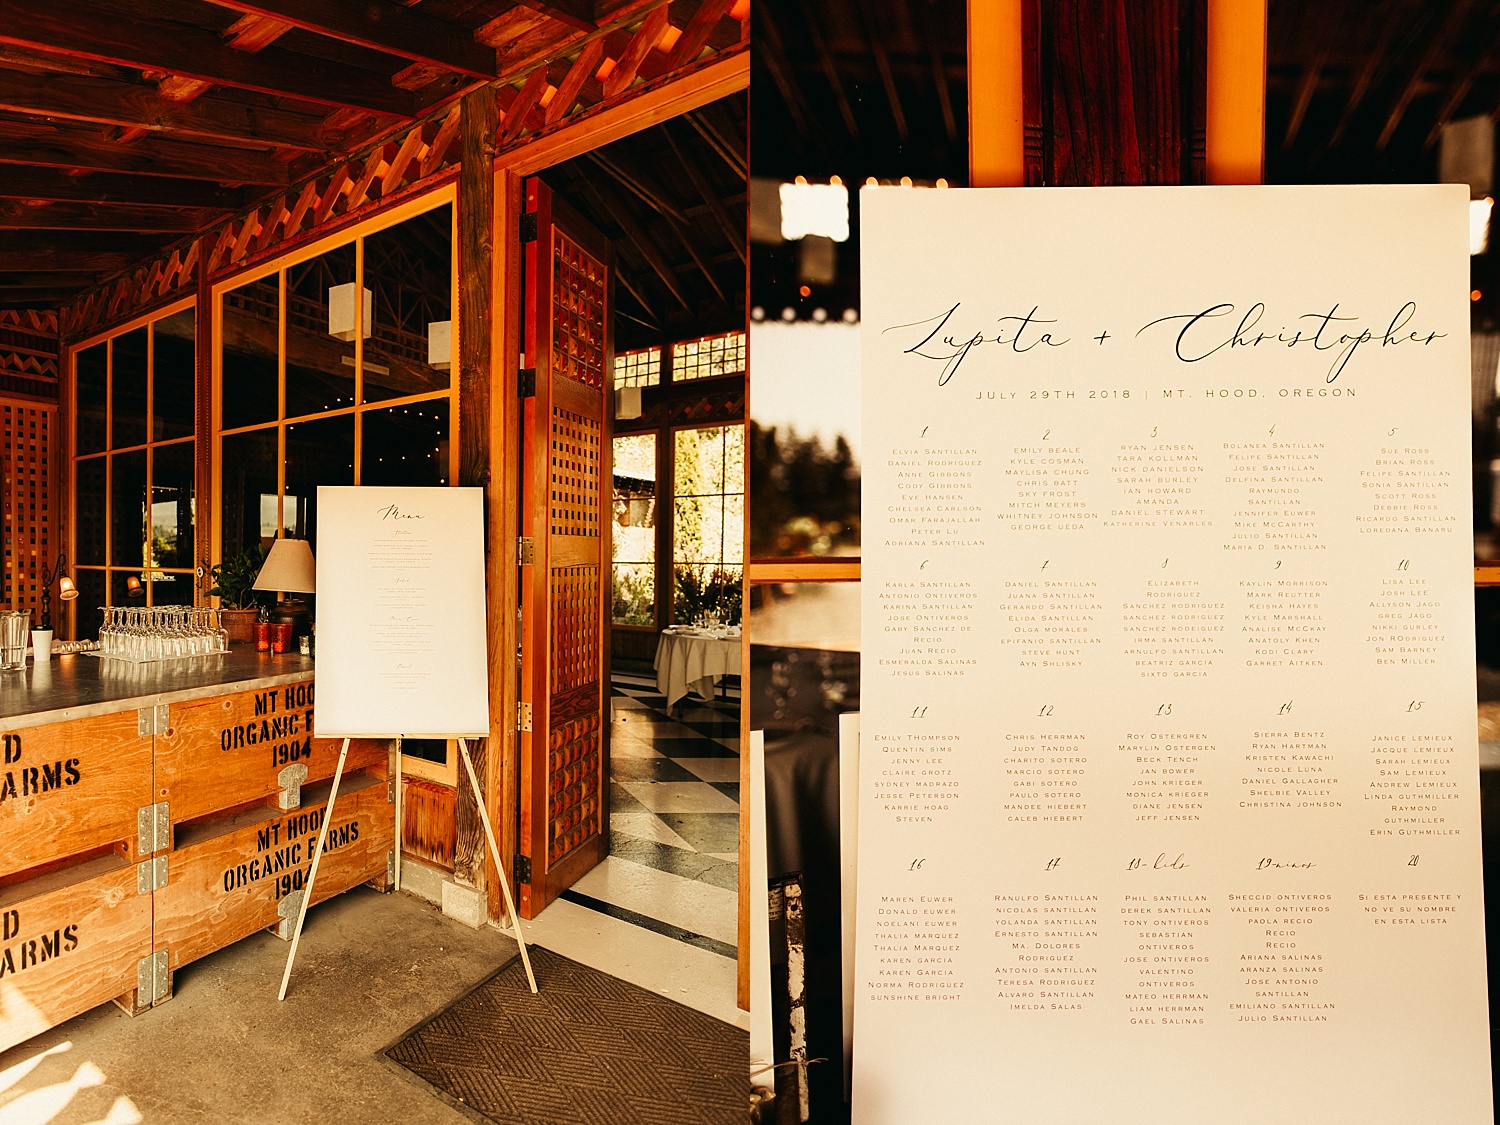 Menu
MT HOO
ORGANIC F
1904
D
ARMS
MT HOOD
ORGANIC FARMS
1904
D
ARMS
Lupita + Christopher
JULY 29TH 2018 | MT. HOOD, OREGON
1
Elvia Santillan
Daniel Rodriguez
Anne Gibbons
Cody Gibbons
Eve Hansen
Chelsea Carlson
Omar Farajallah
Peter Lu
Adriana Santillan
2
Emily Beale
Kyle Cosman
Maylisa Chung
Chris Batt
Sky Frost
Mitch Meyers
Whitney Johnson
George Ueda
3
Ryan Jensen
Tara Kollman
Nick Danielson
Sarah Burley
Ian Howard
Amanda
Daniel Stewart
Katherine Venables
4
Bolanea Santillan
Felipe Santillan
Jose Santillan
Delfina Santillan
Raymundo
Santillan
Jennifer Euwer
Mike McCarthy
Julio Santillan
Maria D. Santillan
5
Sue Ross
Brian Ross
Felipe Santillan
Sonia Santillan
Scott Ross
Debbie Ross
Ricardo Santillan
Loredana Banabu
6
Karla Santillan
Antonio Ontiveros
Karina Santillan
Jose Ontiveros
Gaby Sanchez de
Recio
Juan Recio
Esmeralda Salinas
Jesus Salinas
7
Daniel Santillan
Juana Santillan
Gerardo Santillan
Elida Santillan
Olga morales
Epifanio santillan
Steve Hunt
Ayn Shlisky
8
Elizabeth
Rodriguez
Sanchez rodriguez
Sanchez rodriguez
Sanchez rodeguez
Irma santillan
Arnulfo santillan
Beatriz garcia
Sixto garcia
9
Kaylin Morrison
Mark Reutter
Keisha Hayes
Kyle Marshall
Analise McCkay
Anatoly Khen
Kodi Clary
Garret Aitken
10
Lisa Lee
Josh Lee
Allyson Jago
Greg Jago
nikki gurley
Jon ROdriguez
Sam Barney
Ben Miller
11
Emily THompson
Quentin sims
Jenny Lee
claire grotz
sydney madrazo
Jesse Peterson
Karrie hoag
Steven
12
Chris Herrman
Judy Tandog
charito sotero
marcio sotero
gabi sotero
paulo sotero
mandee hiebert
caleb hiebert
13
Roy Ostergren
Marylin Ostergen
Beck Tench
jan bower
john krieger
monica krieger
diane jensen
jeff jensen
14
Sierra Bentz
Ryan Hartman
Kristen Kawachi
nicole Luna
Daniel Gallagher
Shelbie Valley
Christina johnson
15
Janice lemieux
Jacque lemieux
Sarah lemieux
Sam Lemieux
Andrew Lemieux
Linda guthmiller
Raymond
guthmiller
Erin Guthmiller
16
Maren Euwer
Donald euwer
noelani euwer
thalia marquez
Thalia Marquez
karen garcia
Karen Garcia
Norma Rodriguez
sunshine bright
17
Ranulfo Santillan
Nicolas santillan
Yolanda santillan
Ernesto santillan
Ma. Dolores
Rodriguez
Antonio santillan
Teresa Rodriguez
Alvaro Santillan
Imelda Salas
18- kids
Phil santillan
derek santillan
tony ontiveros
sebastian
ontiveros
jose ontiveros
valentino
ontiveros
mateo herrman
liam herrman
Gael Salinas
19-ninos
Sheccid ontiveros
valeria ontiveros
paola recio
Recio
Recio
Ariana salinas
aranza salinas
jose antonio
santillan
emiliano santillan
Julio Santillan
20
Si esta presente y
no ve su nombre
en esta lista